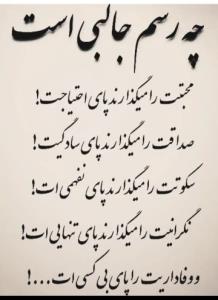 چه رسم جالبی است
محبتت را میگذارند پای احتیاجت!
صداقتت را میگذارند پای سادگیت!
سکوتت را میگذارند پای نفهمی ات!
نگرانیت را میگذارند پای تنهایی ات!
و وفاداریت را پای بی کسی ات...!